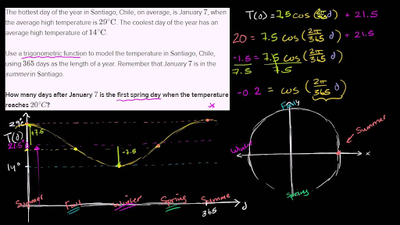 The hottest day of the year in Santiago, Chile, on average, is January 7, when
the average high temperature is 29°C. The coolest day of the year has an
average high temperature of 14°C.
Use a trigonometric function to model the temperature in Santiago, Chile,
using 365 days as the length of a year. Remember that January 7 is in the
summer in Santiago.
How many days after January 7 is the first spring day when the temperature
reaches 20°C?
T(d) = 7.5 cos(2π/365 d) + 21.5
20 = 7.5 cos(2π/365 d) + 21.5
-1.5 = 7.5 cos(2π/365 d)
7.5 7.5
-0.2 = cos(2π/365 d)
29°
T(d)
+7.5
21.5
14°
-7.5
Summer
Fall
Winter
Spring
Summe
365
d
Fall
y
Summer
Winter
x
Spring